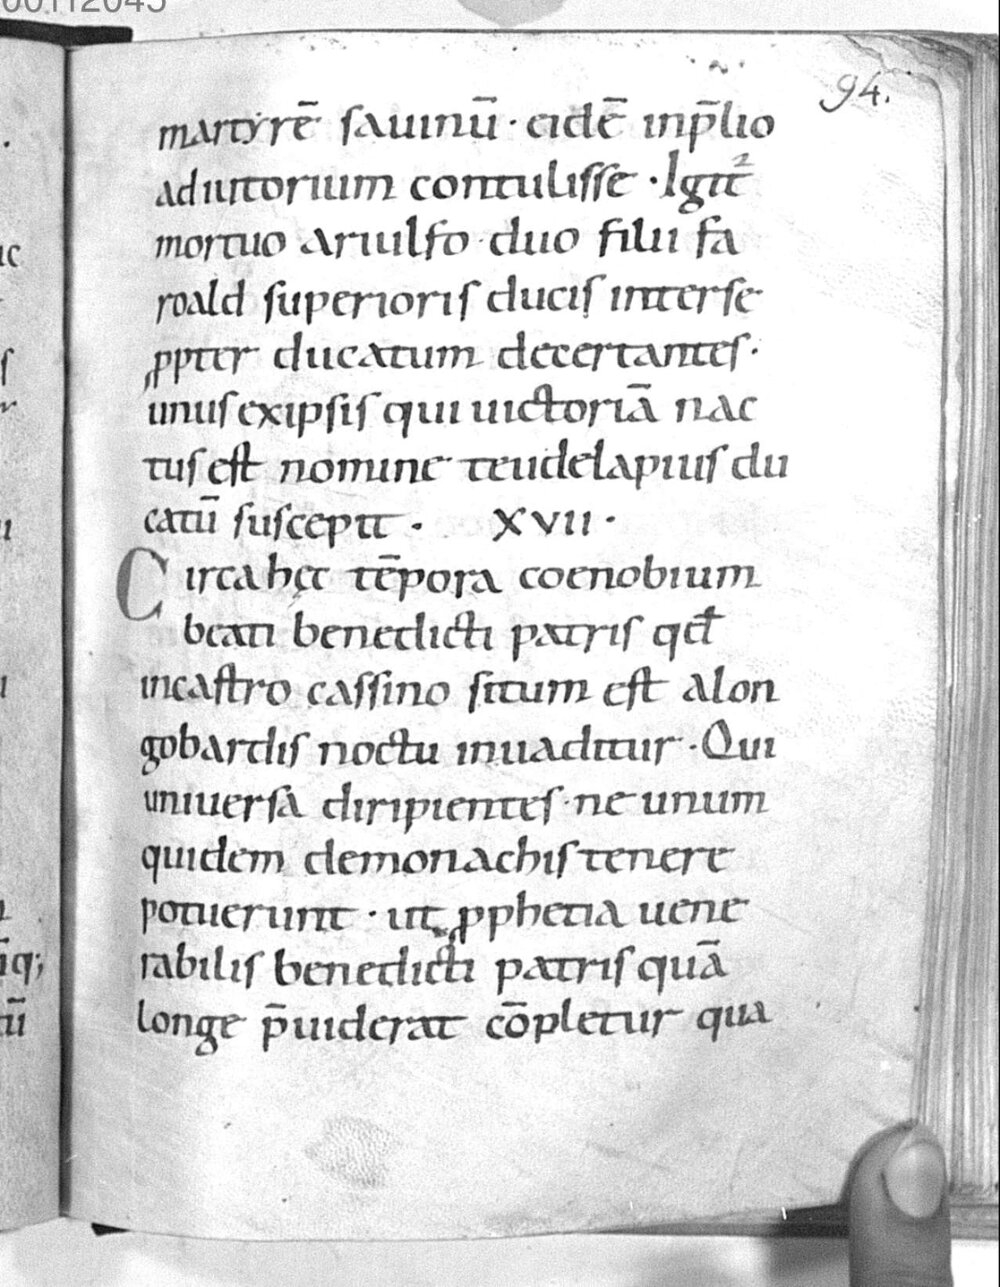 00112045
94.
martyrē sauinū · eidē inp̄lio
adiutorium contulisse · Igit᷑
mortuo ariulfo · duo filii fa
roald superioris ducis interse
ꝓpter ducatum decertantes ·
unus exipsis qui uictoriā nac
tus est nomine teudelapius du
catū suscepit · XVII ·
Circa hęc tēpora coenobium
beati benedicti patris qđ
incastro cassino situm est alon
gobardis noctu inuaditur · Qui
uniuersa diripientes · ne unum
quidem demonachis tenere
potuerunt · ut ꝓphetia uene
rabilis benedicti patris quā
longe p̄uiderat cōpletur qua